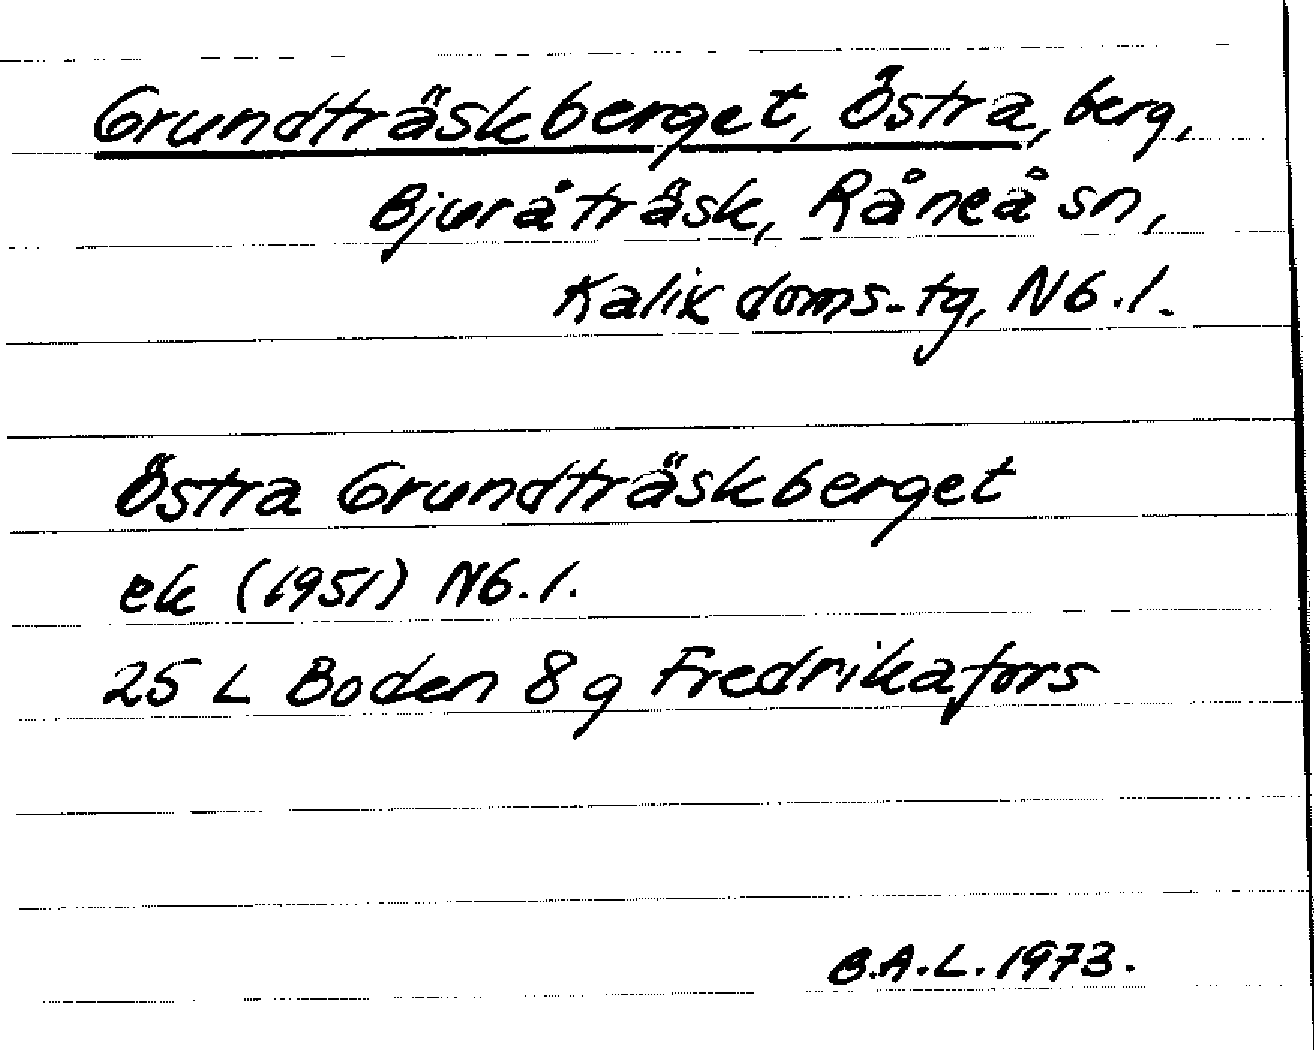 Grundträskberget, Östra, berg,
Bjuråträsk, Råneå sn,
Kalix doms. tg, Nb. l.
Östra Grundträskberget
ek (1951) Nb. l.
25 L Boden 8 g Fredrikafors
B.A.L. 1973.